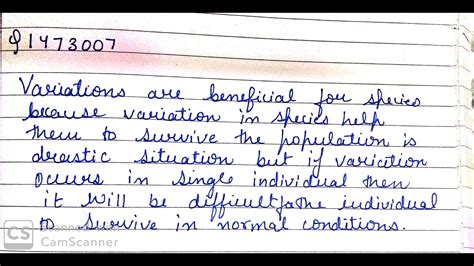 Q1473007
Variations are beneficial for species
because variation in species help
them to survive the population is
drastic situation but if variation
occurs in single individual then
it will be difficult for the individual
to survive in normal conditions.
CS
CamScanner